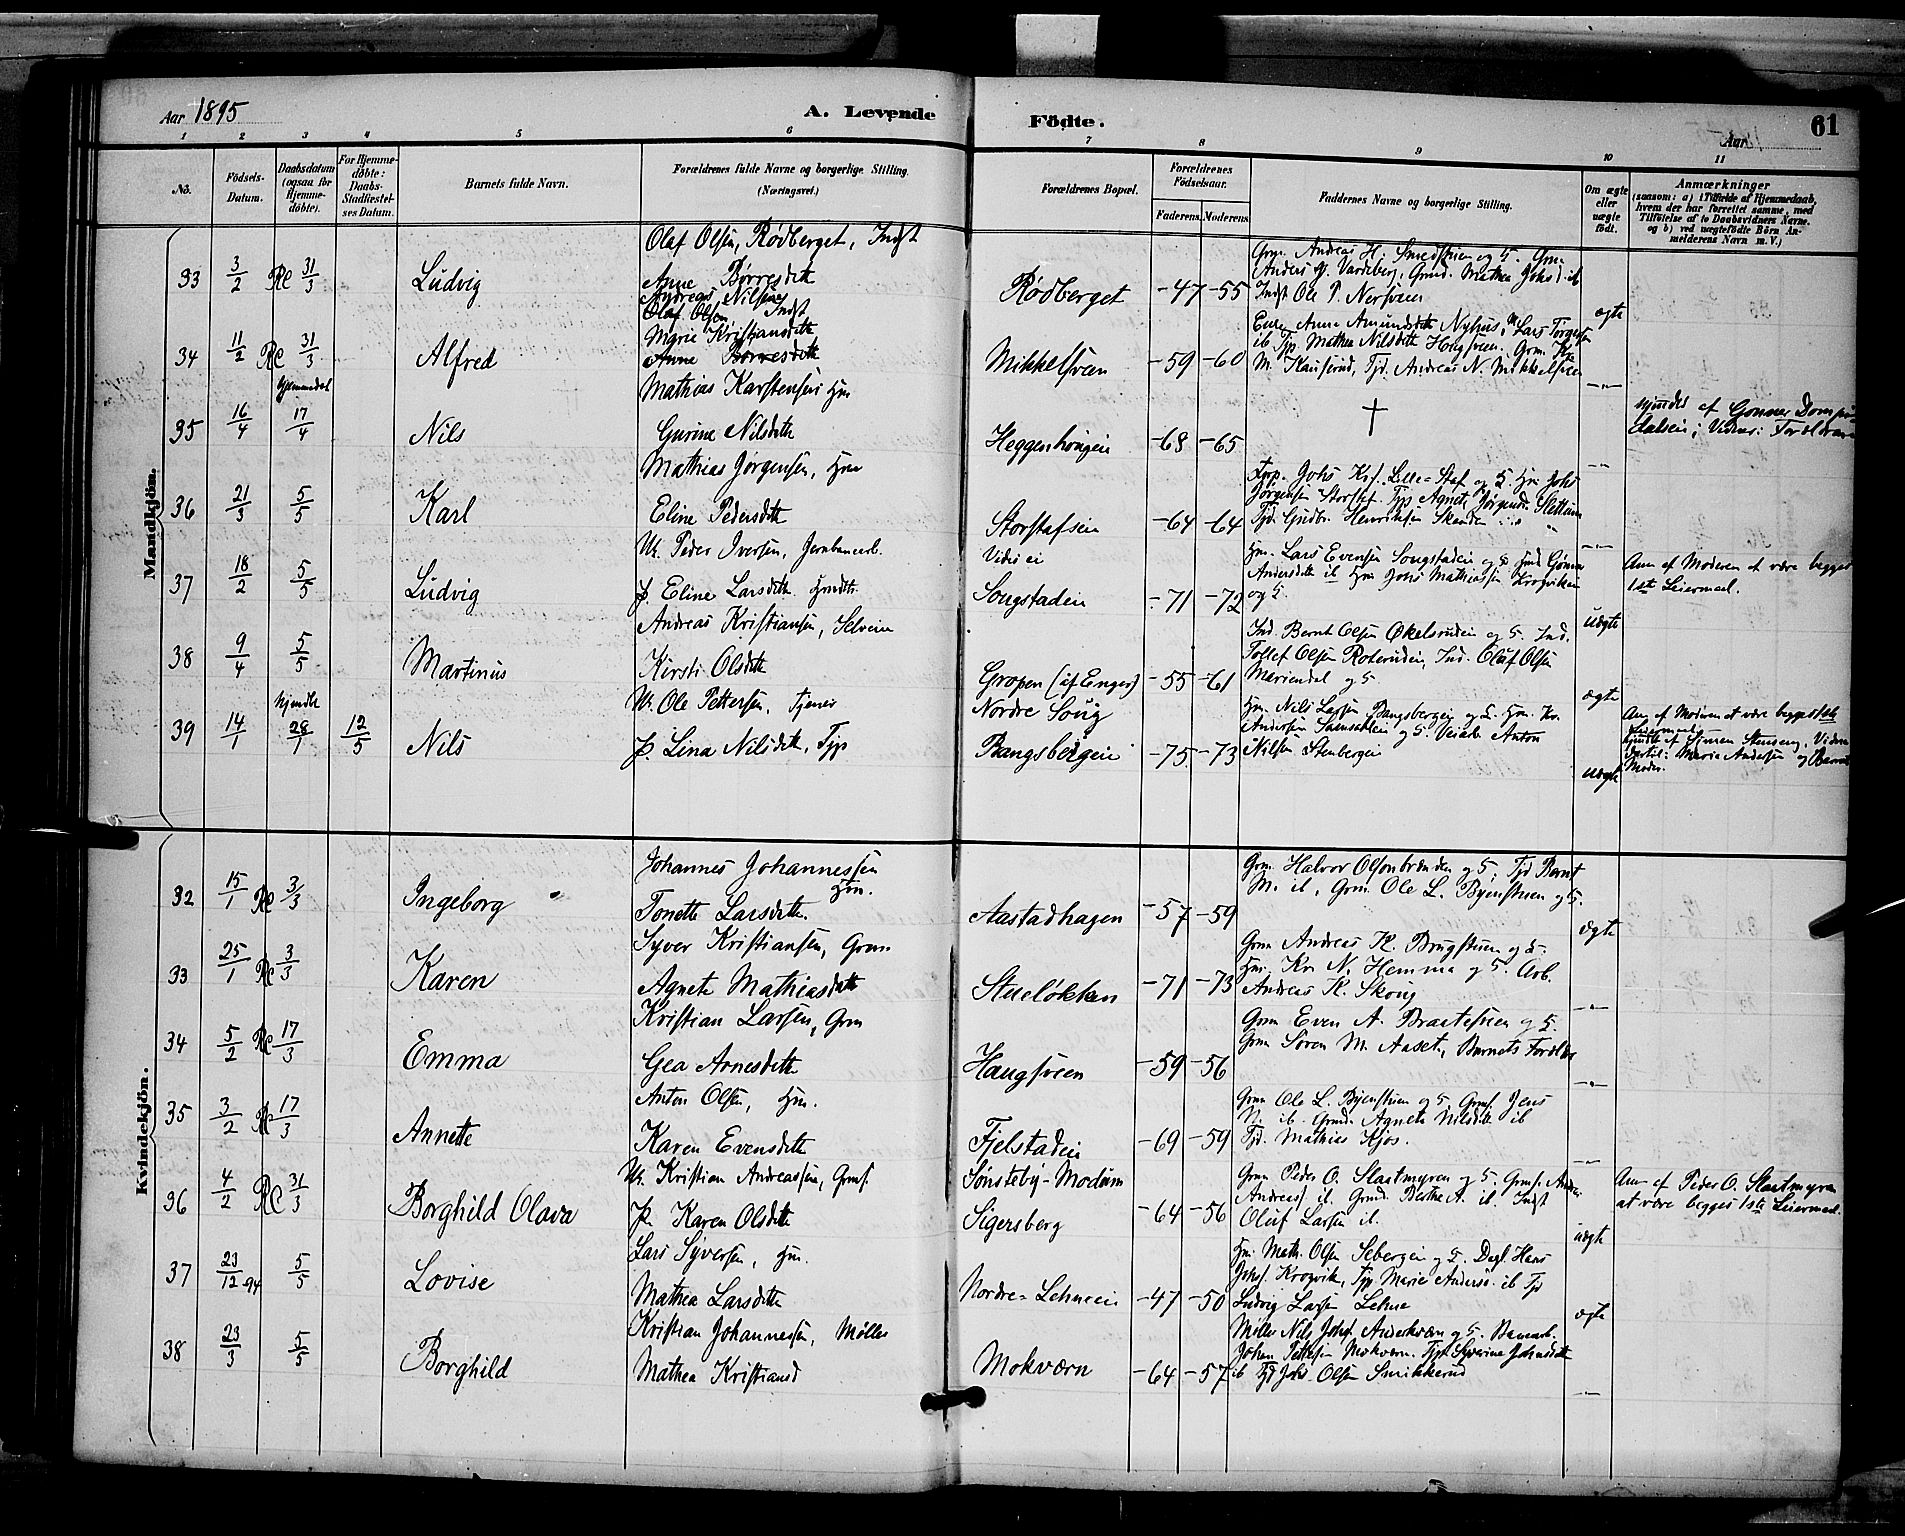 Aar 1895
A. Levende Födte.
61
Aar
1 2 3 4 5 6 7 8 9 10 11
No.
Födsels-Datum.
Daabsdatum (ogsaa for Hjemmedöbte).
For Hjemmedöbte: Daabs-Stadfestelses Datum.
Barnets fulde Navn.
Forældrenes fulde Navne og borgerlige Stilling. (Næringsvei.)
Forældrenes Bopæl.
Forældrenes Födselsaar.
Faderens. Moderens.
Faddernes Navne og borgerlige Stilling.
Om ægte eller uægte födt.
Anmærkninger
(saasom: a) i Tilfælde af Hjemmedaab, hvem der har forrettet samme, med Tilföielse af to Daabsvidners Navne. og b) ved uægtefödte Börn Anmelderens Navn m. V.)
Mandkjön.
33 3/2 Re 31/3 Ludvig
Olaf Olsen, Rødberget, Indst
Anne Børresdtt
Rødberget -47 -55
Grm. Andreas H. Smedstuen og 5. Grm.
Anders Vardeberg, Grmd. Mathea Johsd. ib
Indst Ole P. Nersveen
ægte
34 11/2 Re 31/3 Alfred
Andreas Nilsen
Olaf Olsen Indst
Marie Kristiansdtt
Anne Børresdtt
Mikkelsveen -59 -60
Enke Anne Amundsdtt Nyhus, Lars Torgersen
ib Tjp Mathea Nilsdtt Haugsveen. Grm. Kr.
M. Kauserud, Tjd. Andreas N. Mikkelsveen
-"-
35 16/4 hjemmedøbt 17/4 Nils
Mathias Karstensen Hm
Gurine Nilsdtt
Heggenhougen -68 -65
†
-"-
hjmdøbt af Gunnar
Vidner: Forældrene
36 21/3 5/5 Karl
Mathias Jørgensen, Hm
Eline Pedersdtt
Storstafseie -64 -64
Johs Lille-Staf og 5. Hm Johs
Jørgensen Storstaf. Tjp Agnete Jørgensd. Slettum
Tjd. Gudbr. Henriksen
-"-
37 18/2 5/5 Ludvig
Uk. Peder Iversen, Jernbanearb.
P. Eline Larsdtt. Hmdtr.
Vidsei
Sougstadeie -71 -72
Hm. Lars Evensen Sougstadeie og 5
Andersdtt ib Hm Johs Mathiassen Krogviken
og 5.
uægte
Anm af Moderen at være begges
1ste Leiermaal.
38 9/4 5/5 Martinus
Andreas Kristiansen, Selveier
Kirsti Olsdtt
Gropen (af Enger) -55 -61
Ind. Bernt Olsen Økelsrudeie og 5. Ind.
Tollef Olsen Roterudeie, Ind. Oluf Olsen
Mariendal og 5
ægte
39 14/1 hjemdbt 28/1 12/5 Nils
Uk. Ole Pettersen, Tjener
P. Lina Nilsdtt, Tjp
Nordre Soug
Bangsbergeie -75 -73
Hm. Nils Larsen Bangsbergeie og 5. Hm. Kr.
Andersen og 5. Anton
Nilsen Stenbergeie
uægte
Anm af Moderen at være begges 1ste
Leiermaal
hjmdbt af Simen Stenseng, Vidner
dertil: Marie Andersen og Barnets
Moder.
Kvindekjön.
32 15/1 Re 3/3 Ingeborg
Johannes Johannessen
Hm.
Tonette Larsdtt.
Aastadhagen -57 -59
Grm. Halvor Olsenbrænden og 5, Tjd Bernt
M. ib, Grm. Ole L. Byenstuen og 5.
ægte
33 25/1 Re 3/3 Karen
Syver Kristiansen, Grm
Agnete Mathiasdtt
Stueløkken -71 -73
Grm Andreas K. Brugstuen og 5.
Hm. Kr. N. Hemma og 5. Arb.
Andreas K. Skoug
-"-
34 5/2 Re 17/3 Emma
Kristian Larsen, Grm
Gea Arnesdtt
Haugsveen -59 -56
Grm Even A. Braatesveen og 5.
Grm Søren M. Aaset, Barnets Forældre
-"-
35 3/2 Re 17/3 Annette
Anton Olsen, Hm.
Karen Evensdtt
Fjelstadeie -69 -59
Grm Ole L. Byenstuen og 5. Grms. Jens
N. ib. Grmd. Agnete Nilsdtt ib
Tjd. Mathias Kjos.
-"-
36 4/2 Re 31/3 Borghild Olava
Uk. Kristian Andreassen, Grms.
P. Karen Olsdtt
Sønsteby-Modum
Sigersberg -64 -56
Grm Peder O. Slaatmyren og 5. Grms. Anders
Andreass. ib. Grmd. Berthe A. ib. Indst
Oluf Larsen ib.
uægte
Anm af Peder O. Slaatmyren
at være begges 1ste Leiermaal.
37 23/12 94 5/5 Lovise
Lars Syversen, Hm.
Mathea Larsdtt
Nordre-Lehneeie -47 -50
Hm. Math. Olsen Sebergeie og 5. Dagl. Hans
Johs. Krogvik, Tjp Marie Andersd. ib Tjd
Ludvig Larsen Lehne
ægte
38 23/3 5/5 Borghild
Kristian Johannessen, Møller
Mathea Kristiansd
Mokværn -64 -57
Møller Nils Johs. Anderkværn og 5.
Johan Pettersen Mokværn. Tjp. Syverine Johansdtt
ib Tjd Johs. Olsen Smikkerud
-"-